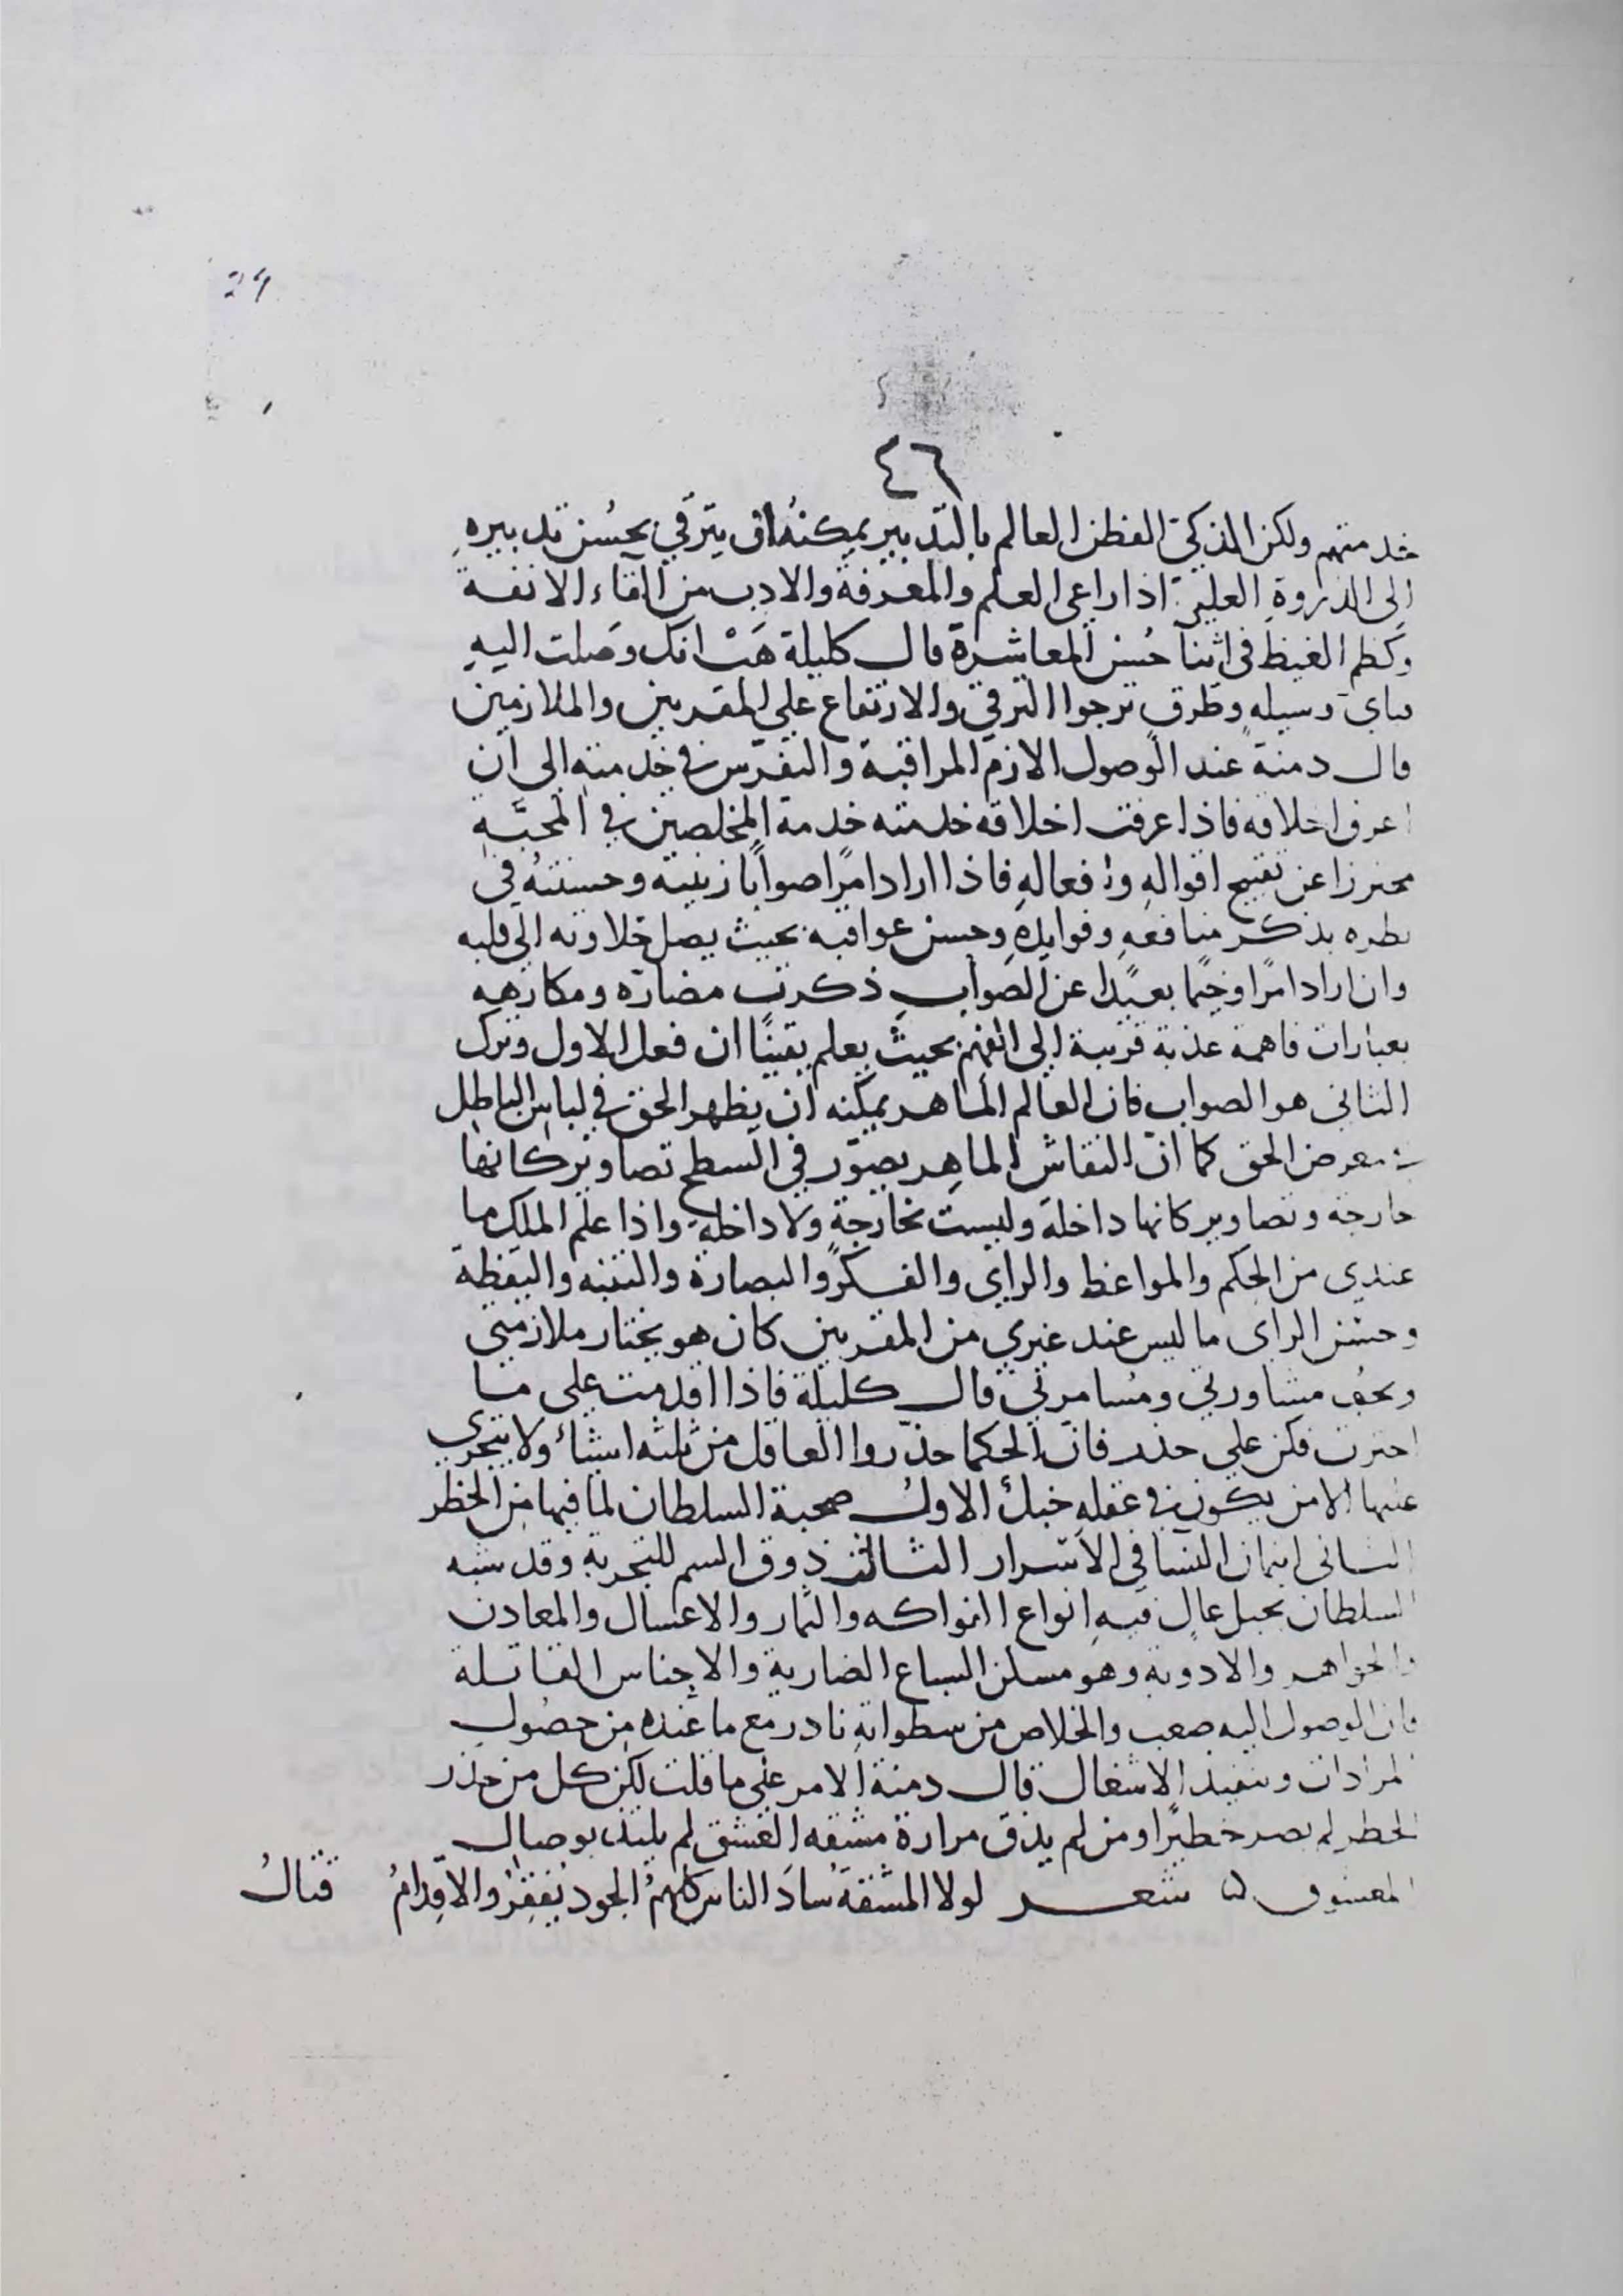 29
٤٦
خدمتهم ولكن الذكيّ الفطن العالم بالتدبير يمكنهُ ان يترقي بحُسن تدبيرهِ
الى الذروة العلية اذا راعى العلم والمعرفة والادب من القاء الانفة
وكظم الغيظ في اثنا حُسن المعاشرة قال كليلة هَبْ انك وصلت اليهِ
فباى وسيله وطرق ترجوا الترقي والارتفاع علي المقربين والملازمين
قال دمنة عند الوصول الازم المراقبة والتفرّس في خدمته الى ان
اعرف اخلاقه فاذا عرفت اخلاقه خدمته خدمة المخلصين في المحبَّةِ
محترزا عن تقبيح اقوالهِ وافعالهِ فاذا اراد امرًا صوابًا زينته وحسنتهُ في
نظره بذكر منافعهِ وفوايدهِ وحسن عواقبه بحيث يصل حلاوته الى قلبه
وان اراد امرًا وخيمًا بعيدًا عن الصواب ذكرت مضارّه ومكارهه
بعبارات فاهمة عذبة قريبة الى الفهم بحيث يعلم يقينًا ان فعل الاول وترك
الثانى هو الصواب فان العالم الماهر يمكنه ان يظهر الحق في لباس الباطل
في معرض الحق كما انّ النقاش الماهِر يصوّر في السطح تصاوير كانها
خارجة وتصاوير كانها داخلة وليست بخارجةٍ ولا داخلةٍ واذا علم الملك ما
عندي من الحِكم والمواعظ والراي والفكر والبصارة والتنبه واليقظة
وحسن الراى ما ليس عند غيري من المقربين كان هو يختار ملازمتي
ويحب مشاورتي ومُسامرتي قال كليلة فاذا اقدمت على ما
اخترت فكن علي حذر فانّ الحكما حذّروا العاقل من ثلثه اشيآء ولا يتجرى
عليها الا من يكون في عقلهِ خبلٌ الاولُ صحبة السلطان لما فيها من الخطر
الثانى ايتمان النسا في الاسرار الثالث ذوق السم للتجربة وقد شبه
السلطان بجبل عالٍ فيهِ انواع الفواكه والثمار والاعسال والمعادن
والجواهر والادوية وهو مسكن السباع الضارية والاجناس القاتلة
فان الوصول اليه صعب والخلاص من سطواتهِ نادر مع ما عنده من حصُول
المرادات وتنفيذ الاشغال قال دمنة الامر علي ما قلت لكن كل من حذر
الخطر لم يصر خطيرًا ومن لم يذق مرارة مشقه العشق لم يلتذ بوصال
المعشوق ۵ شعر لولا المشقةُ سادَ الناس كلهمُ الجود يُفقِرُ والاقدامُ قتالُ